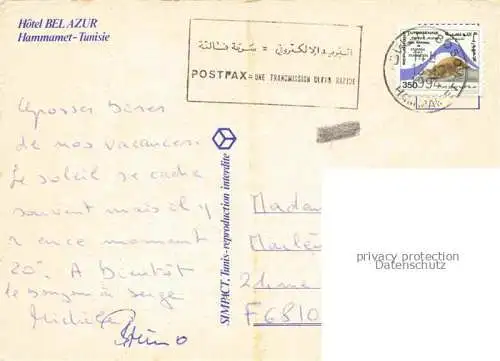 Hôtel BEL AZUR
Hammamet-Tunisie
البريد الالكتروني = سرعة فائقة
POSTFAX = UNE TRANSMISSION ULTRA RAPIDE
350
1994
HAMMAMET
Grosses bises
de nos vacances.
Le soleil se cache
souvent mais il y
a en ce moment
20°. A Bientôt
le bonjour à Serge
Michèle
SIMPACT, Tunis-reproduction interdite
F6810
privacy protection
Datenschutz